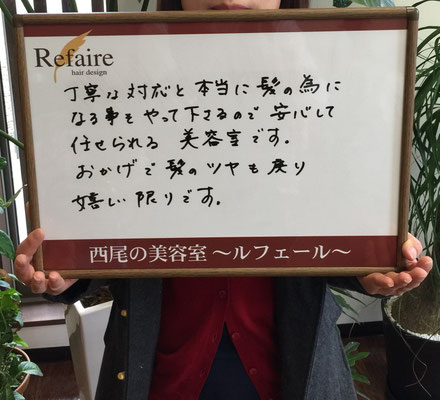 Refaire
hair design
丁寧な対応と本当に髪の為に
なる事をやって下さるので安心して
任せられる 美容室です。
おかげで髪のツヤも戻り
嬉しい限りです。
西尾の美容室 ～ルフェール～